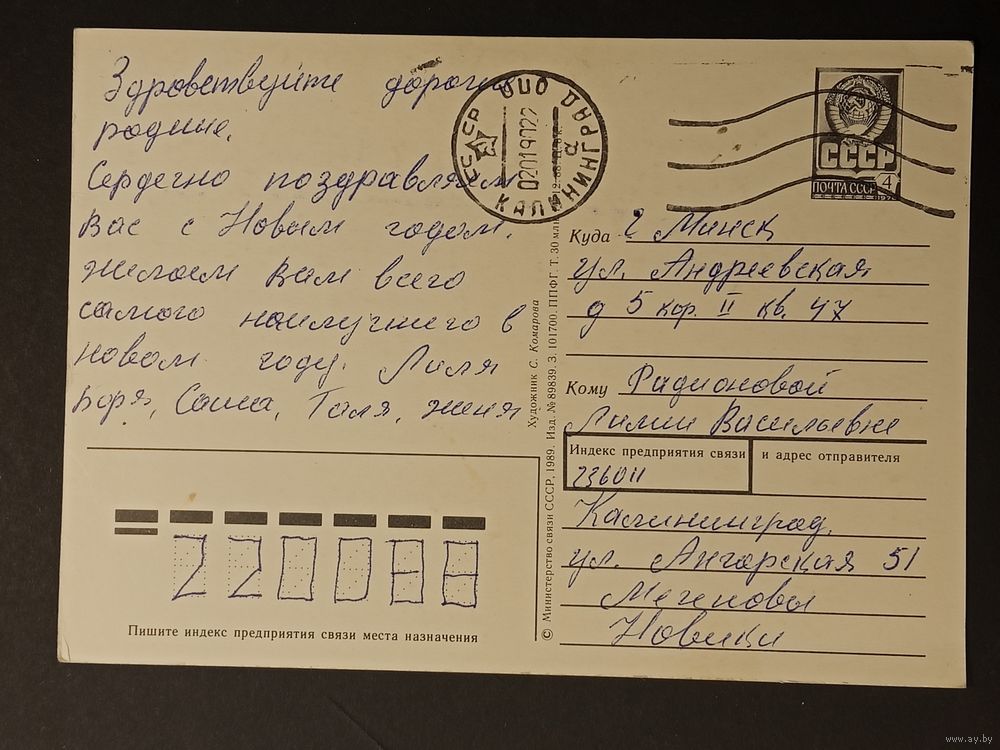 Здравствуйте дорогие
родные.
Сердечно поздравляем
Вас с Новым годом.
желаем Вам всего
самого наилучшего в
новом году. Лиля
Боря, Саша, Толя, женя
КАЛИНИНГРАД ОПО
СССР
0201907022
СССР
ПОЧТА СССР
4
Куда г Минск
ул. Андреевская
д 5 кор. II кв. 47
Кому Радионовой
Лилии Васильевне
Индекс предприятия связи и адрес отправителя
236011
Калининград,
ул. Ангарская 51
Новики
220088
Пишите индекс предприятия связи места назначения
Художник С. Комарова
© Министерство связи СССР, 1989. Изд. № 89839. З. 101700. ППФГ. Т. 30 млн
www.ay.by